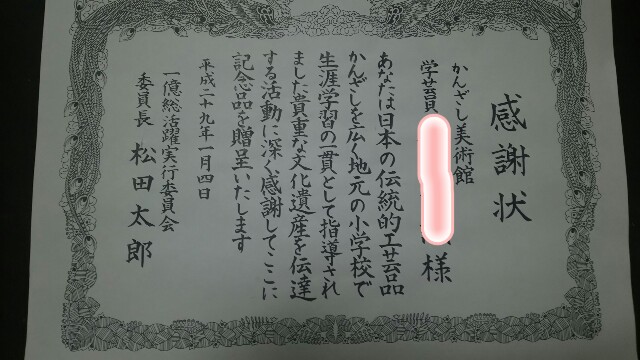 感謝状
かんざし美術館
学芸員
様
あなたは日本の伝統的工芸品
かんざしを広く地元の小学校で
生涯学習の一貫として指導され
ました貴重な文化遺産を伝達
する活動に深く感謝してここに
記念品を贈呈いたします
平成二十九年一月四日
一億総活躍実行委員会
委員長 松田太郎